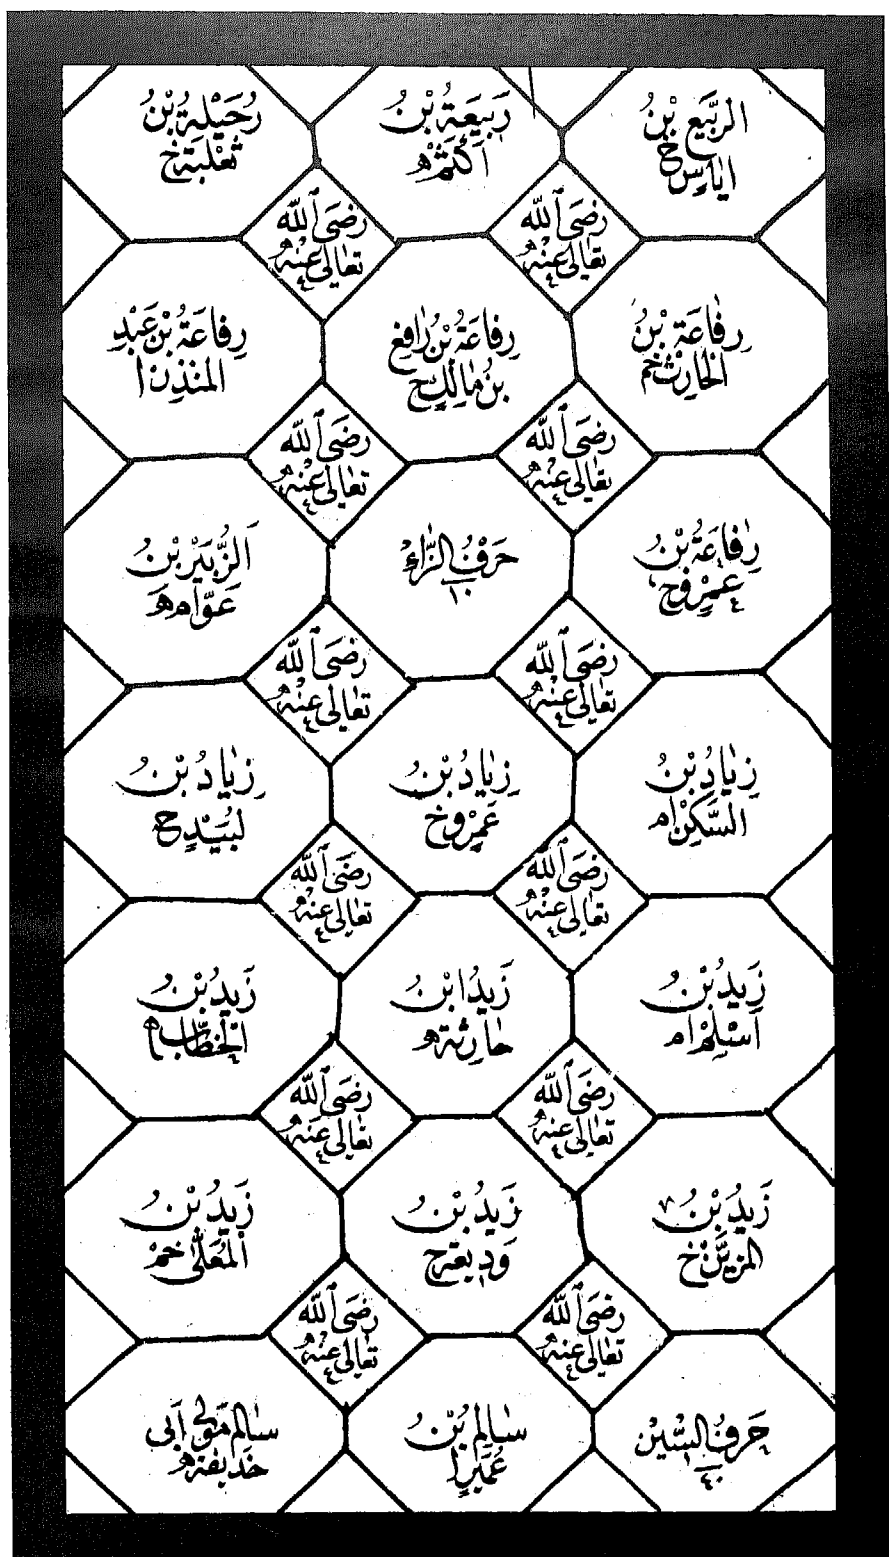 الرَّبِيعُ بْنُ
اِيَاسٍ خ
رَبِيعَةُ بْنُ
اَكْثَمْ هـ
رُحَيْلَةُ بْنُ
ثَعْلَبَةَ خ
رَضِيَ ٱللّٰه
تَعَالٰى عَنْهُ
رَضِيَ ٱللّٰه
تَعَالٰى عَنْهُ
رِفَاعَةُ بْنُ
الْحَارِثِ خم
رِفَاعَةُ بْنُ رَافِعِ
بْنِ مَالِكٍ ح
رِفَاعَةُ بْنُ عَبْدِ
الْمُنْذِرْ ا
رَضِيَ ٱللّٰه
تَعَالٰى عَنْهُ
رَضِيَ ٱللّٰه
تَعَالٰى عَنْهُ
رِفَاعَةُ بْنُ
عَمْرٍو ح
حَرْفُ الزَّاءِ
١٠
اَلزُّبَيْرُ بْنُ
عَوَّام هـ
رَضِيَ ٱللّٰه
تَعَالٰى عَنْهُ
رَضِيَ ٱللّٰه
تَعَالٰى عَنْهُ
زِيَادُ بْنُ
السَّكَنِ ام
زِيَادُ بْنُ
عَمْرٍو خ
زِيَادُ بْنُ
لَبِيدٍ ح
رَضِيَ ٱللّٰه
تَعَالٰى عَنْهُ
رَضِيَ ٱللّٰه
تَعَالٰى عَنْهُ
زَيْدُ بْنُ
اَسْلَمْ ام
زَيْدُ ابْنُ
حَارِثَةَ هـ
زَيْدُ بْنُ
الْخَطَّابْ هـ
رَضِيَ ٱللّٰه
تَعَالٰى عَنْهُ
رَضِيَ ٱللّٰه
تَعَالٰى عَنْهُ
زَيْدُ بْنُ
الْمُزَيَّنْ خ
زَيْدُ بْنُ
وَدِيعَةَ ح
زَيْدُ بْنُ
الْمُعَلّٰى خم
رَضِيَ ٱللّٰه
تَعَالٰى عَنْهُ
رَضِيَ ٱللّٰه
تَعَالٰى عَنْهُ
حَرْفُ السِّيْنْ
٤٠
سَالِمُ بْنُ
عُمَيْرٍ ا
سَالِمْ مَوْلٰى اَبِى
حُذَيْفَةَ هـ